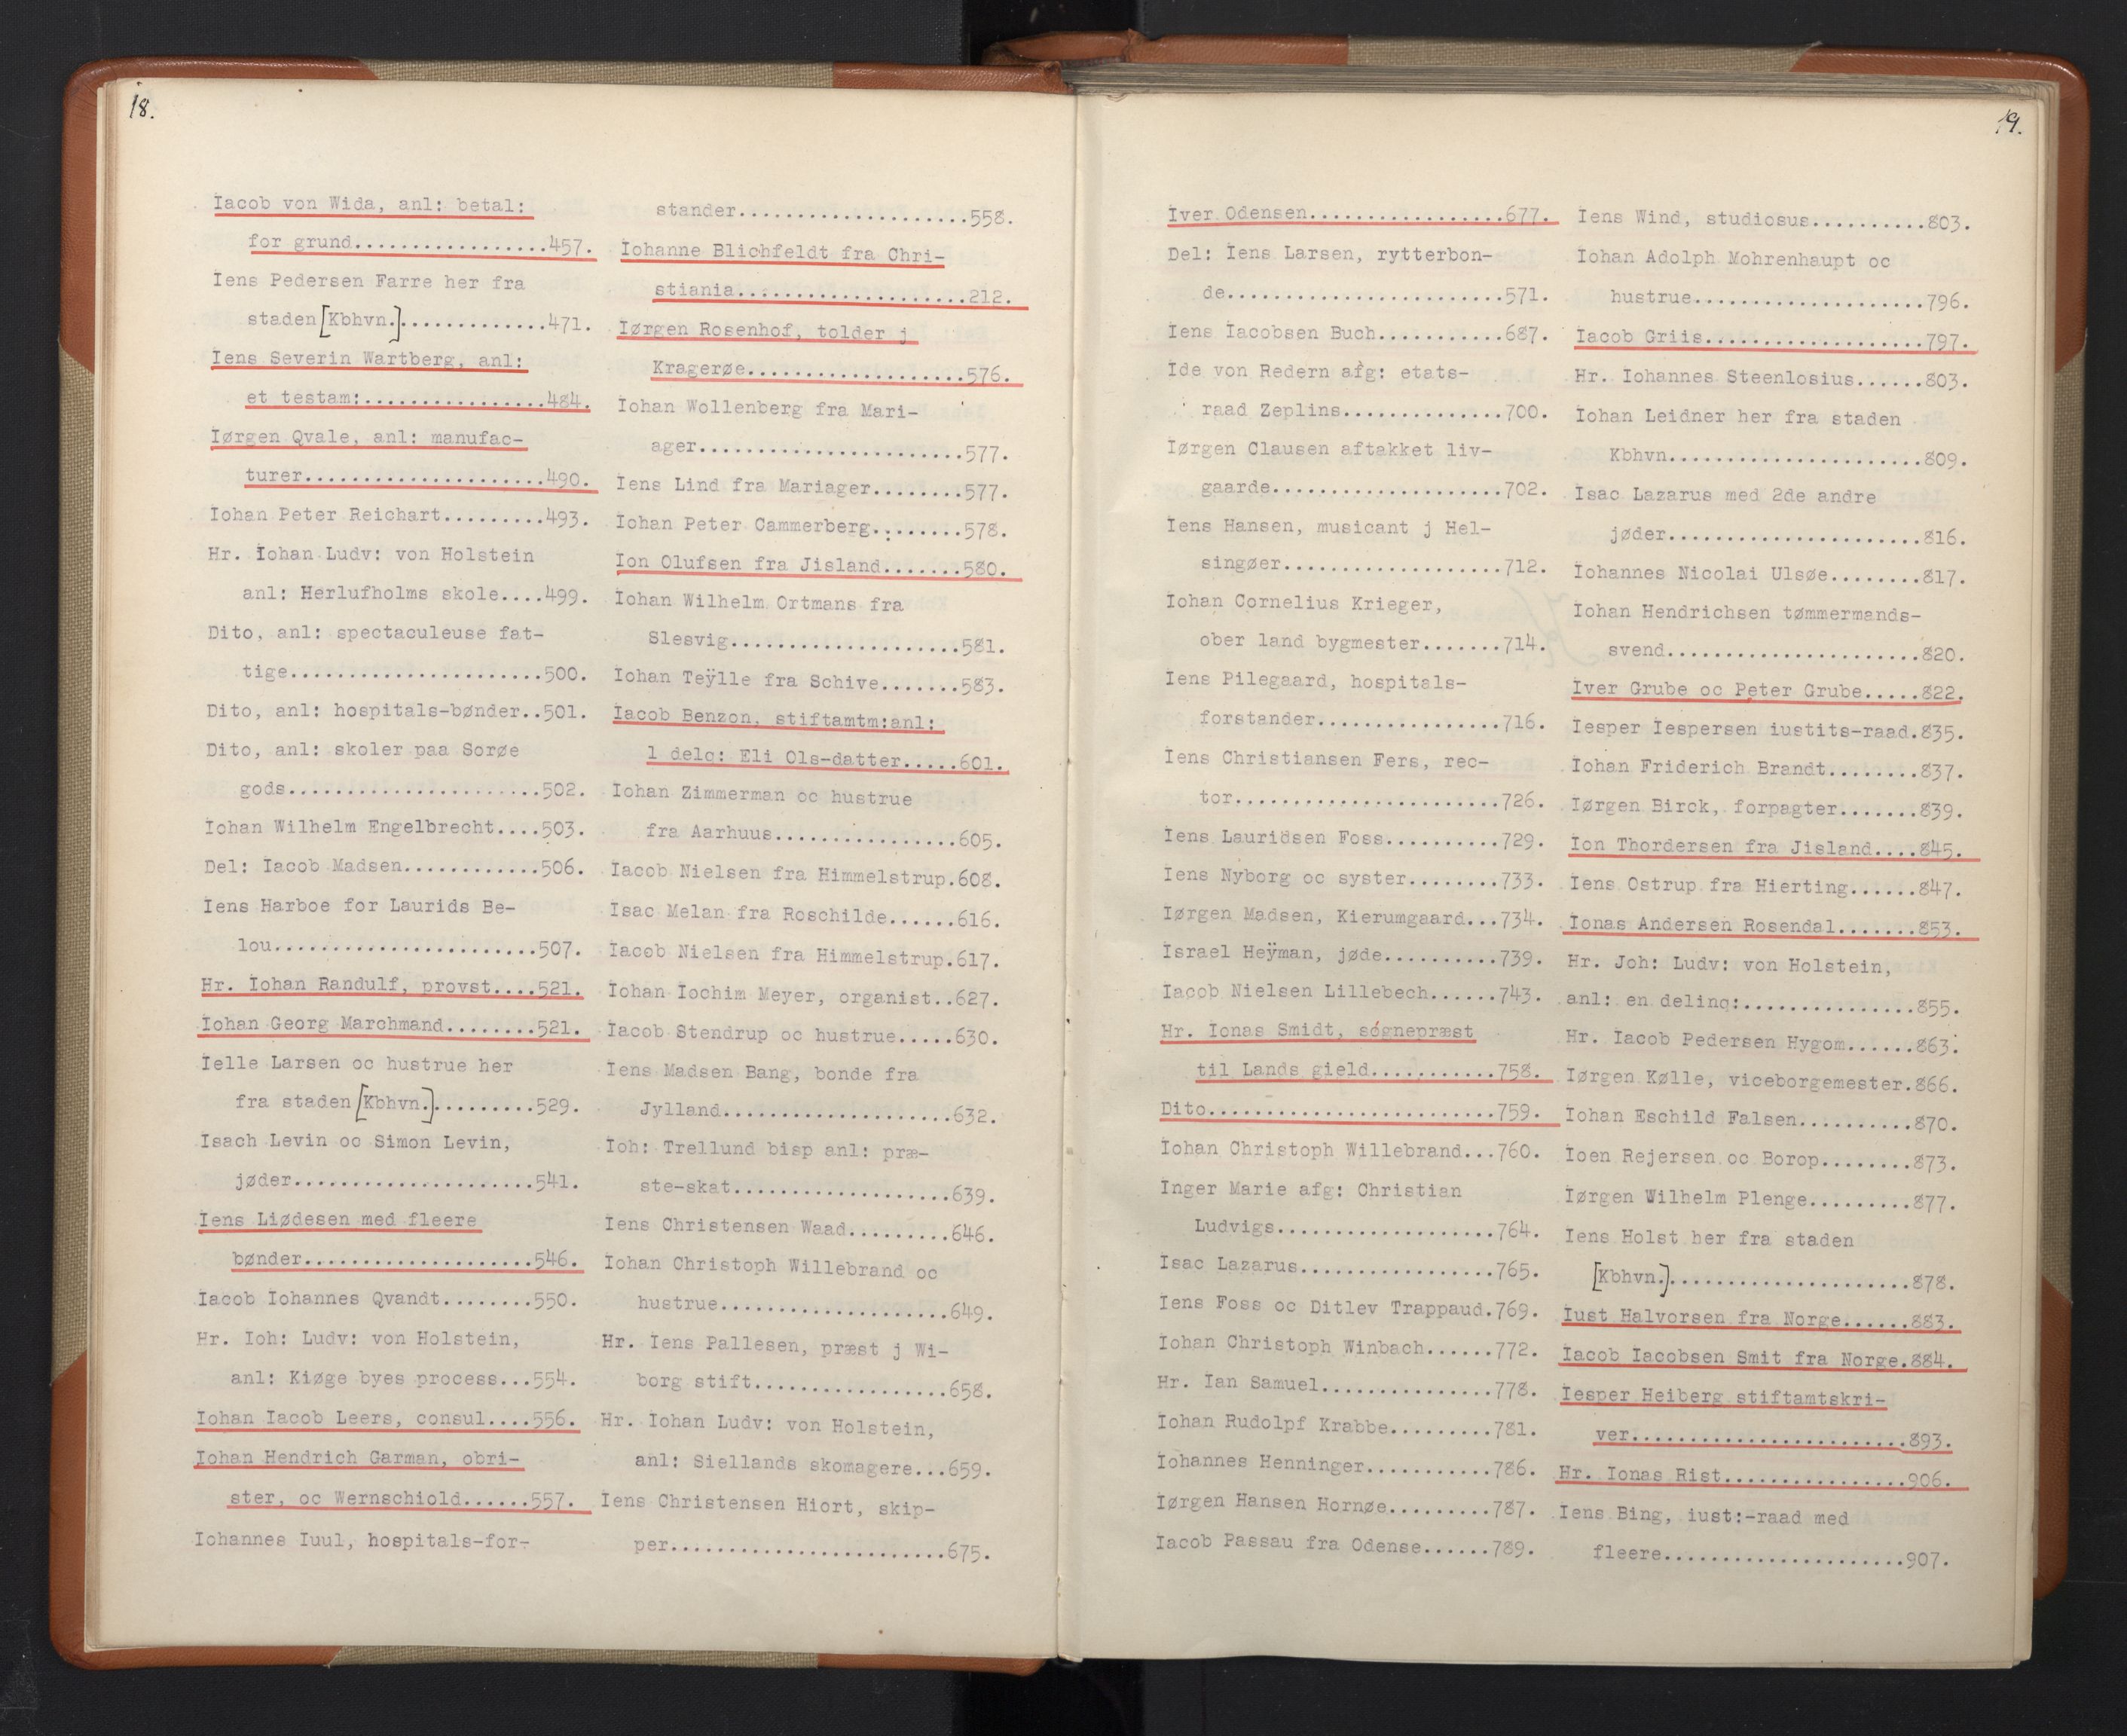 18.
Iacob von Wida, anl: betal:
for grund.................457.
Iens Pedersen Farre her fra
staden[Kbhvn.].............471.
Iens Severin Wartberg, anl:
et testam:................484.
Iørgen Qvale, anl: manufac-
turer.....................490.
Iohan Peter Reichart.........493.
Hr. Iohan Ludv: von Holstein
anl: Herlufholms skole....499.
Dito, anl: spectaculeuse fat-
tige......................500.
Dito, anl: hospitals-bønder..501.
Dito, anl: skoler paa Sorøe
gods......................502.
Iohan Wilhelm Engelbrecht....503.
Del: Iacob Madsen............506.
Iens Harboe for Laurids Be-
lou.......................507.
Hr. Iohan Randulf, provst....521.
Iohan Georg Marchmand........521.
Ielle Larsen oc hustrue her
fra staden[Kbhvn.].........529.
Isach Levin oc Simon Levin,
jøder.....................541.
Iens Liødesen med fleere
bønder....................546.
Iacob Iohannes Qvandt........550.
Hr. Ioh: Ludv: von Holstein,
anl: Kiøge byes process...554.
Iohan Iacob Leers, consul....556.
Iohan Hendrich Garman, obri-
ster, oc Wernschiold......557.
Iohannes Iuul, hospitals-for-
stander....................558.
Iohanne Blichfeldt fra Chri-
stiania....................212.
Iørgen Rosenhof, tolder j
Kragerøe...................576.
Iohan Wollenberg fra Mari-
ager.......................577.
Iens Lind fra Mariager........577.
Iohan Peter Cammerberg........578.
Ion Olufsen fra Jisland.......580.
Iohan Wilhelm Ortmans fra
Slesvig....................581.
Iohan Teÿlle fra Schive.......583.
Iacob Benzon, stiftamtm:anl:
1 delq: Eli Ols-datter.....601.
Iohan Zimmerman oc hustrue
fra Aarhuus................605.
Iacob Nielsen fra Himmelstrup.608.
Isac Melan fra Roschilde......616.
Iacob Nielsen fra Himmelstrup.617.
Iohan Iochim Meyer, organist..627.
Iacob Stendrup oc hustrue.....630.
Iens Madsen Bang, bonde fra
Jylland....................632.
Ioh: Trellund bisp anl: præ-
ste-skat...................639.
Iens Christensen Waad.........646.
Iohan Christoph Willebrand oc
hustrue....................649.
Hr. Iens Pallesen, præst j Wi-
borg stift.................658.
Hr. Iohan Ludv: von Holstein,
anl: Siellands skomagere...659.
Iens Christensen Hiort, skip-
per........................675.
19.
Iver Odensen.................677.
Del: Iens Larsen, rytterbon-
de........................571.
Iens Iacobsen Buch...........687.
Ide von Redern afg: etats-
raad Zeplins..............700.
Iørgen Clausen aftakket liv-
gaarde....................702.
Iens Hansen, musicant j Hel-
singøer...................712.
Iohan Cornelius Krieger,
ober land bygmester.......714.
Iens Pilegaard, hospitals-
forstander................716.
Iens Christiansen Fers, rec-
tor.......................726.
Iens Lauridsen Foss..........729.
Iens Nyborg oc syster........733.
Iørgen Madsen, Kierumgaard...734.
Israel Heÿman, jøde..........739.
Iacob Nielsen Lillebech......743.
Hr. Ionas Smidt, sognepræst
til Lands gield...........758.
Dito.........................759.
Iohan Christoph Willebrand...760.
Inger Marie afg: Christian
Ludvigs...................764.
Isac Lazarus.................765.
Iens Foss oc Ditlev Trappaud.769.
Iohan Christoph Winbach......772.
Hr. Ian Samuel...............778.
Iohan Rudolpf Krabbe.........781.
Iohannes Henninger...........786.
Iørgen Hansen Hornøe.........787.
Iacob Passau fra Odense......789.
Iens Wind, studiosus..........803.
Iohan Adolph Mohrenhaupt oc
hustrue....................796.
Iacob Griis...................797.
Hr. Iohannes Steenlosius......803.
Iohan Leidner her fra staden
Kbhvn......................809.
Isac Lazarus med 2de andre
jøder......................816.
Iohannes Nicolai Ulsøe........817.
Iohan Hendrichsen tømmermands-
svend......................820.
Iver Grube oc Peter Grube.....822.
Iesper Iespersen iustits-raad.835.
Iohan Friderich Brandt........837.
Iørgen Birck, forpagter.......839.
Ion Thordersen fra Jisland....845.
Iens Ostrup fra Hierting......847.
Ionas Andersen Rosendal.......853.
Hr. Joh: Ludv: von Holstein,
anl: en delinq:...............855.
Hr. Iacob Pedersen Hygom......863.
Iørgen Kølle, viceborgemester.866.
Iohan Eschild Falsen..........870.
Ioen Rejersen oc Borop........873.
Iørgen Wilhelm Plenge.........877.
Iens Holst her fra staden
[Kbhvn.].....................878.
Iust Halvorsen fra Norge......883.
Iacob Iacobsen Smit fra Norge.884.
Iesper Heiberg stiftamtskri-
ver........................893.
Hr. Ionas Rist................906.
Iens Bing, iust:-raad med
fleere.....................907.